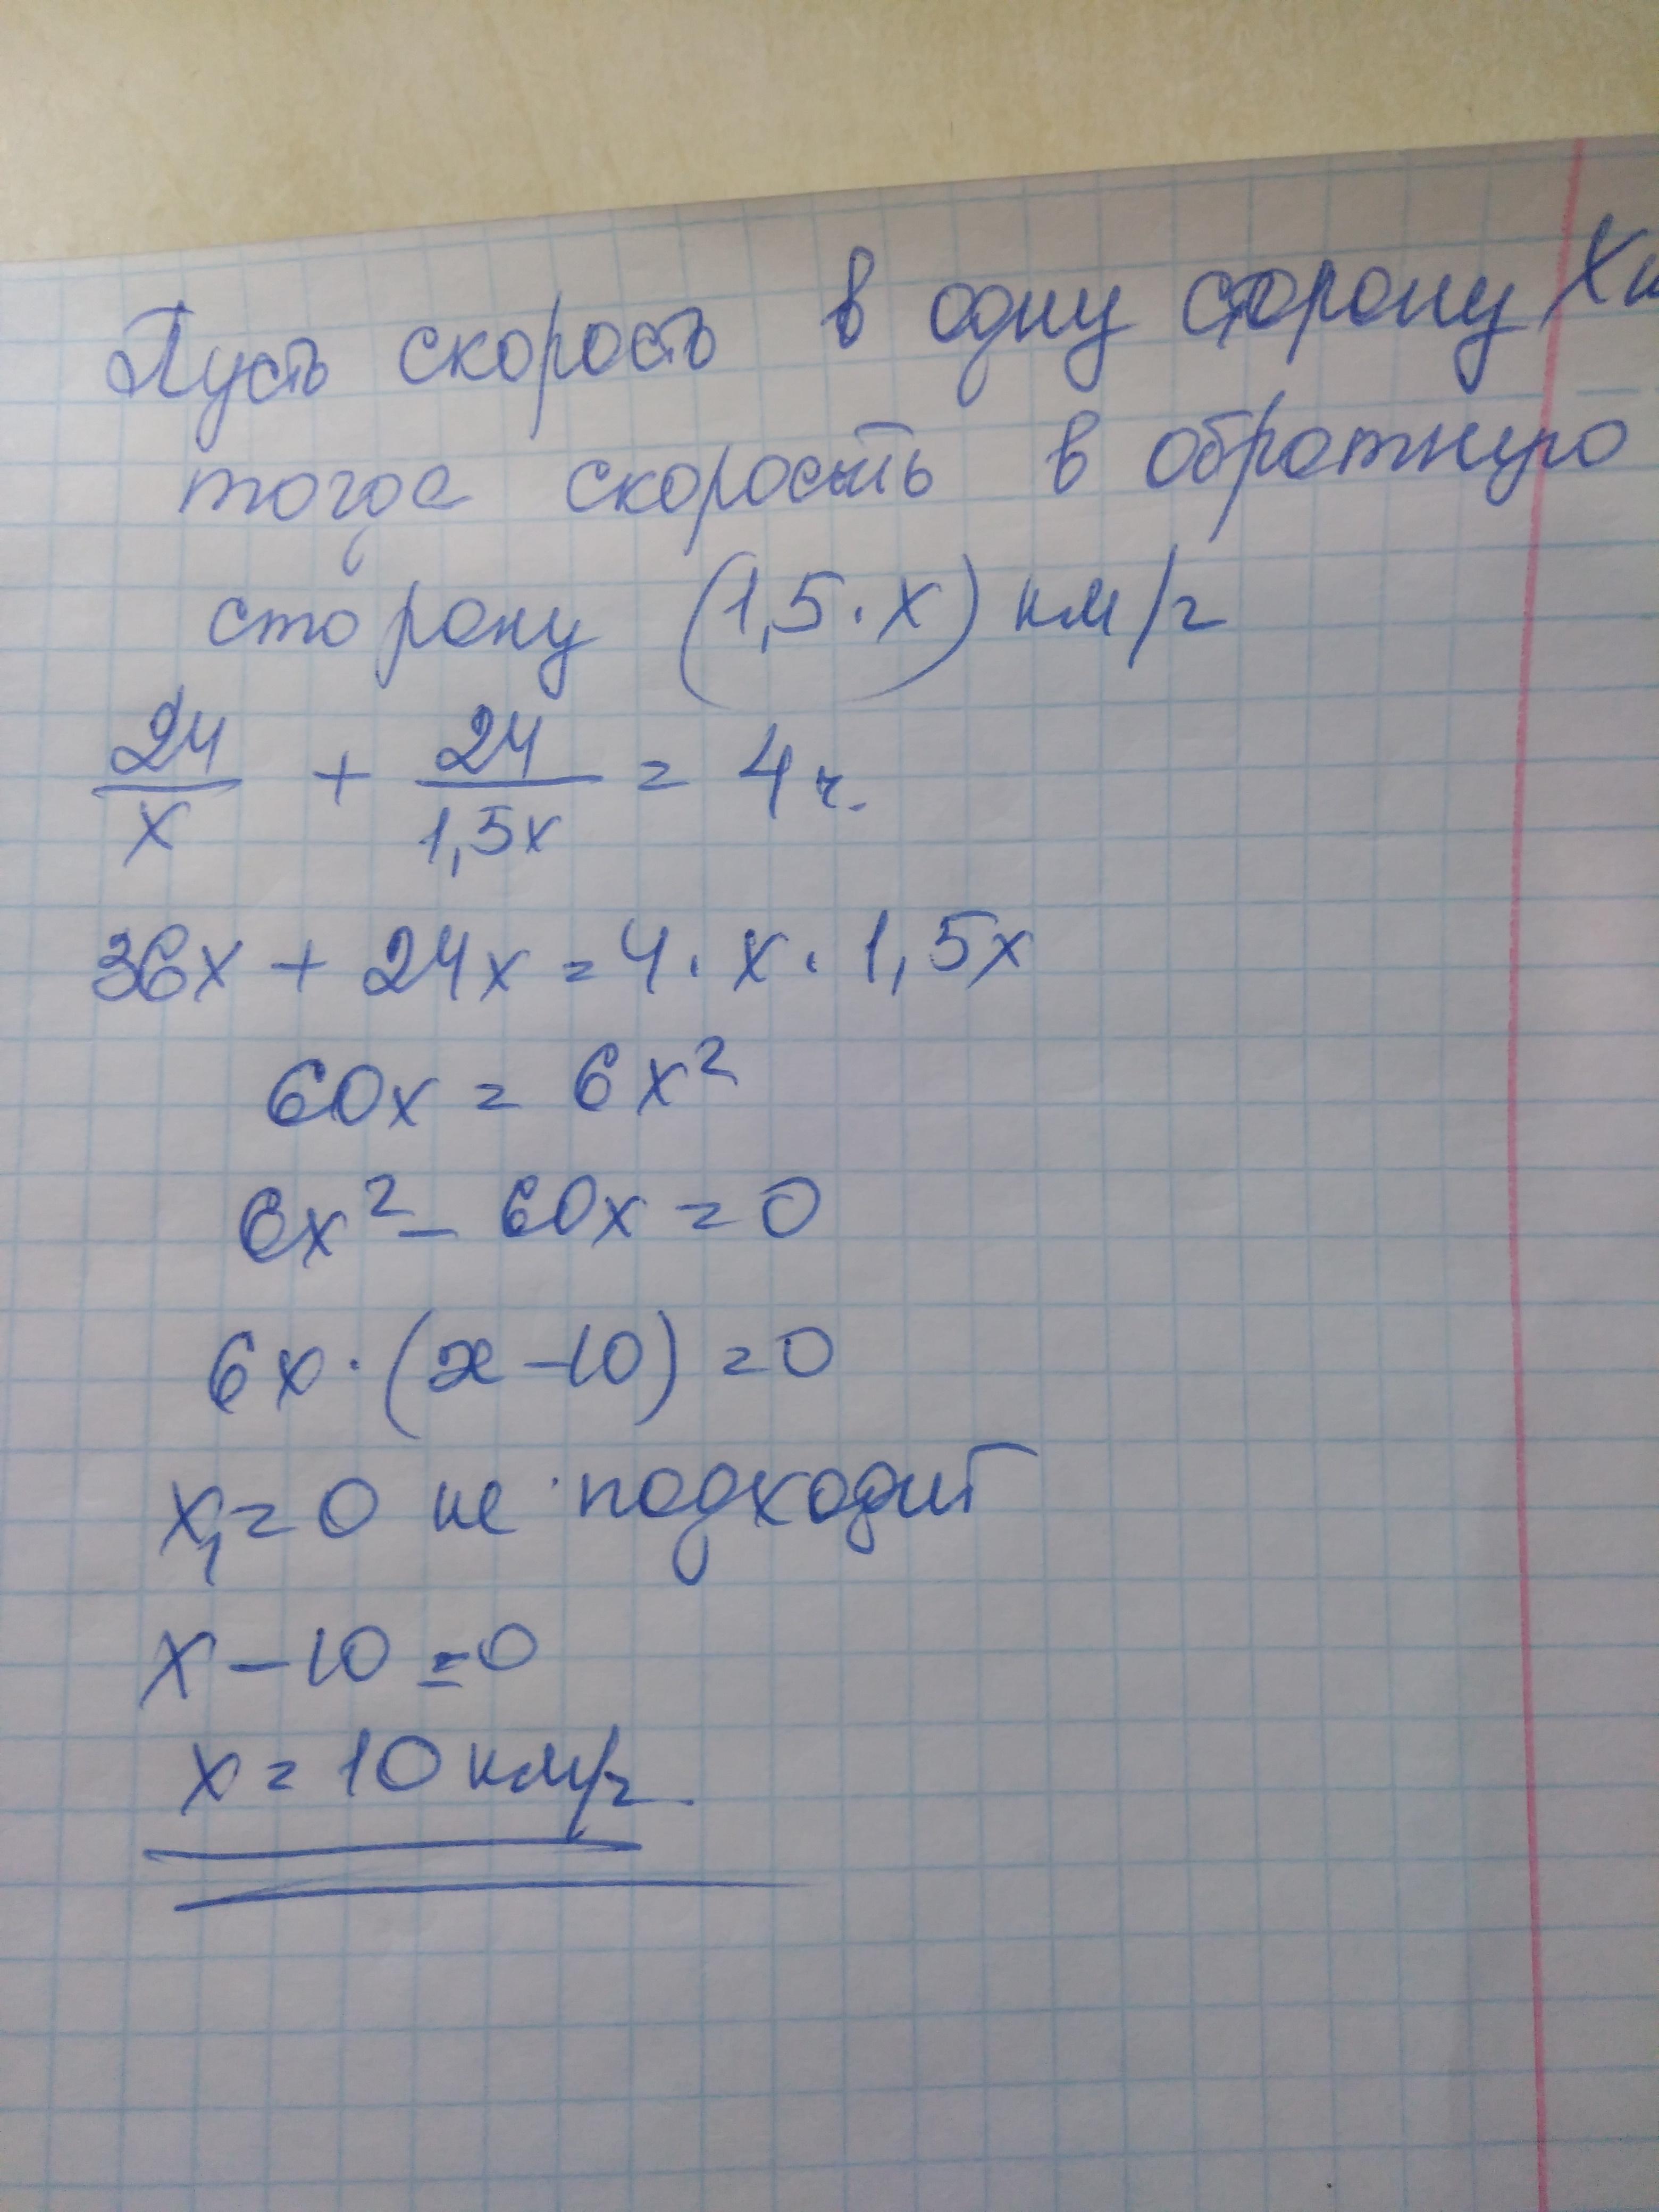 Пусть скорость в одну сторону X км
тогда скорость в обратную
сторону (1,5 · x) км/ч
24/x + 24/1,5x = 4 ч.
36x + 24x = 4 · x · 1,5x
60x = 6x²
6x² - 60x = 0
6x · (x - 10) = 0
x₁ = 0 не подходит
x - 10 = 0
x = 10 км/ч